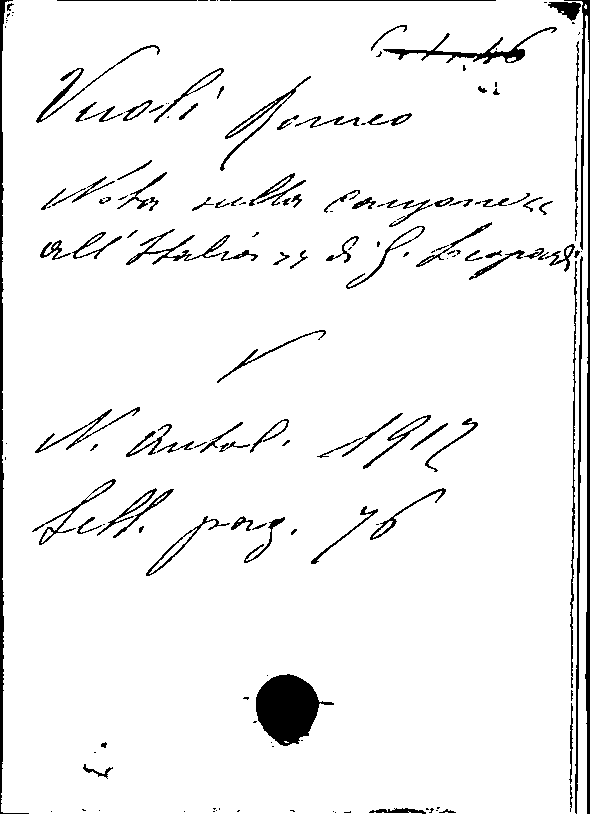 Vuoli Romeo
Nota sulla canzone «
all'Italia » di G. Leopardi
V
N. Antol. 1917
Sett. pag. 76